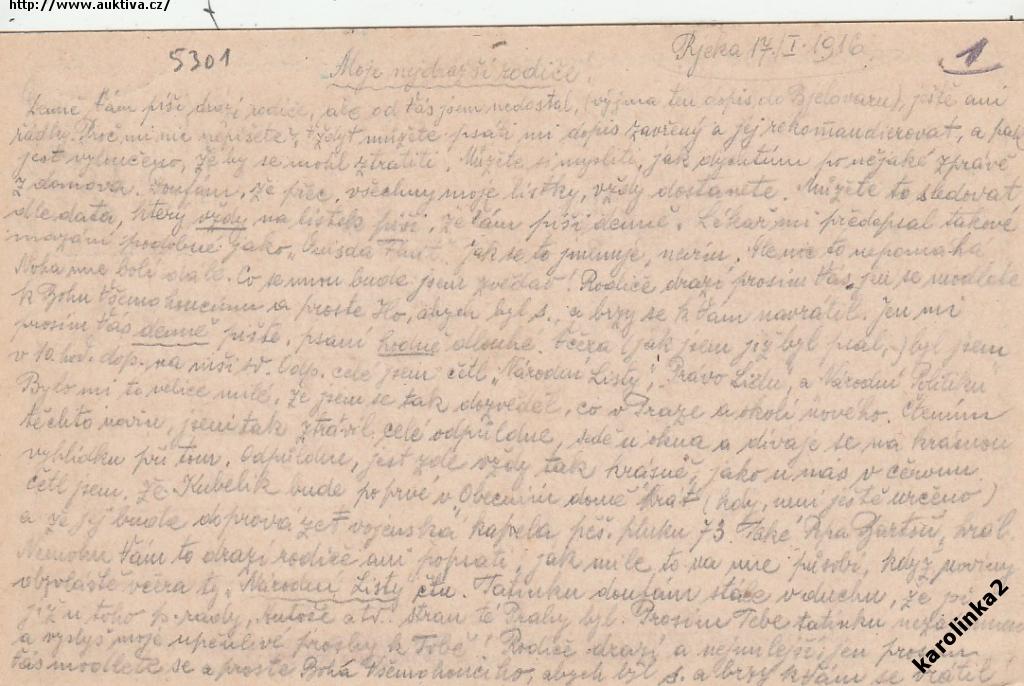 http://www.auktiva.cz/
5301
Rjeka 17/I. 1916.
1
Moje nejdražší rodiče!
Denně Vám píši drazí rodiče, ale od Vás jsem nedostal, (vyjma ten dopis do Bjelovaru), ještě ani
řádky. Proč mi nic nepíšete, vždyť můžete psáti mi dopis zavřený a jej rekomandierovat, a pak
jest vyloučeno, že by se mohl ztratiti. Můžete si mysliti, jak dychtím po nějaké zprávě
z domova. Doufám, že přec, všechny moje lístky, vždy dostanete. Můžete to sledovat
dle data, který vždy na lístek píši, že Vám píši denně. Lékař mi předepsal takové
mazání, podobné jako jak se to jmenuje, nevím. Ale nic to nepomáhá
Noha mne bolí dále. Co se mnou bude jsem zvědav! Rodiče drazí prosím Vás, jen se modlete
k Bohu Všemohoucímu a proste Ho, abych byl s. a brzy se k Vám navrátil. Jen mi
prosím Vás denně pište, psaní hodně dlouhé. Včera (jak jsem již byl psal,-) byl jsem
v 10 hod. dop. na mši sv. Odp. celé jsem četl „Národní Listy", „Právo Lidu", a Národní Politiku
Bylo mi to velice milé, že jsem se tak dozvěděl, co v Praze a okolí nového. Čtením
těchto novin, jsem tak ztrávil celé odpůldne, sedě u okna a dívaje se na krásnou
vyhlídku při tom. Odpůldne, jest zde vždy tak krásně, jako u nás v červnu.
Četl jsem, že Kubelík bude poprvé v Obecním domě hrát (kdy, není ještě určeno)
a že jej bude doprovázet vojenská kapela pěš. pluku 73. Také hrál.
Nemohu Vám to drazí rodiče ani popsati, jak mile to na mne působí, když noviny
obzvláště včera ty „Národní Listy čtu. Tatínku doufám stále v duchu, že jsi
již u toho p. rady, atd. stran té Prahy byl. Prosím Tebe tatínku
a vyslyš moje upěnlivé prosby k Tobě! Rodiče drazí a nejmilejší, jen prosím
Vás modlete se a proste Boha Všemohoucího, abych byl s. a brzy k Vám se vrátil!
karolinka2